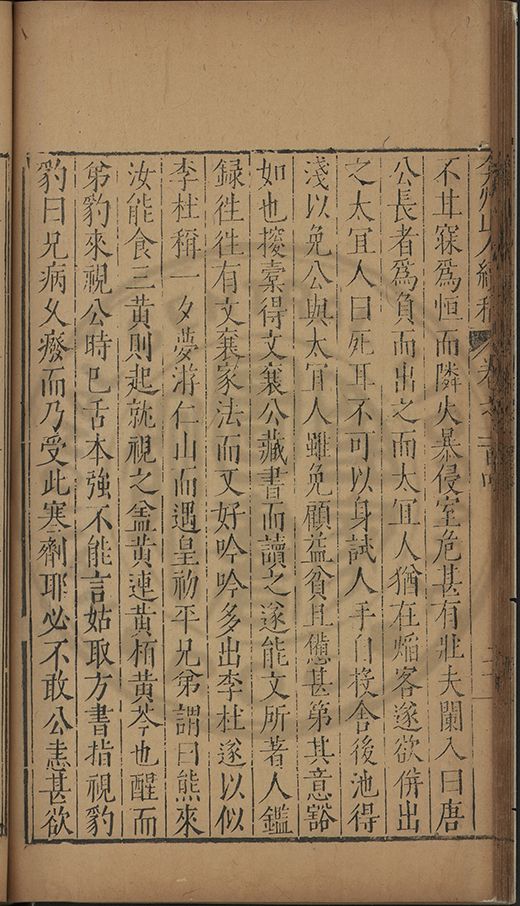 弇州山人續稿 卷之一百
不甘寐爲恒而隣失暴侵室危甚有壯夫闌入曰唐
公長者爲負而出之而太宜人猶在熖客遂欲併出
之太宜人曰死耳不可以身試人手自投舍後池得
淺以免公與太宜人雖免顧益貧且憊甚第其意豁
如也搜橐得文襄公藏書而讀之遂能文所著人鑑
録徃徃有文襄家法而又好吟吟多出李杜遂以似
李杜稱一夕夢游仁山而遇皇初平兄弟謂曰熊來
汝能食三黃則起就視之盖黃連黃栢黃芩也醒而
弟豹來視公時已舌本強不能言姑取方書指視豹
豹曰兄病久癈而乃受此寒劑耶必不敢公恚甚欲